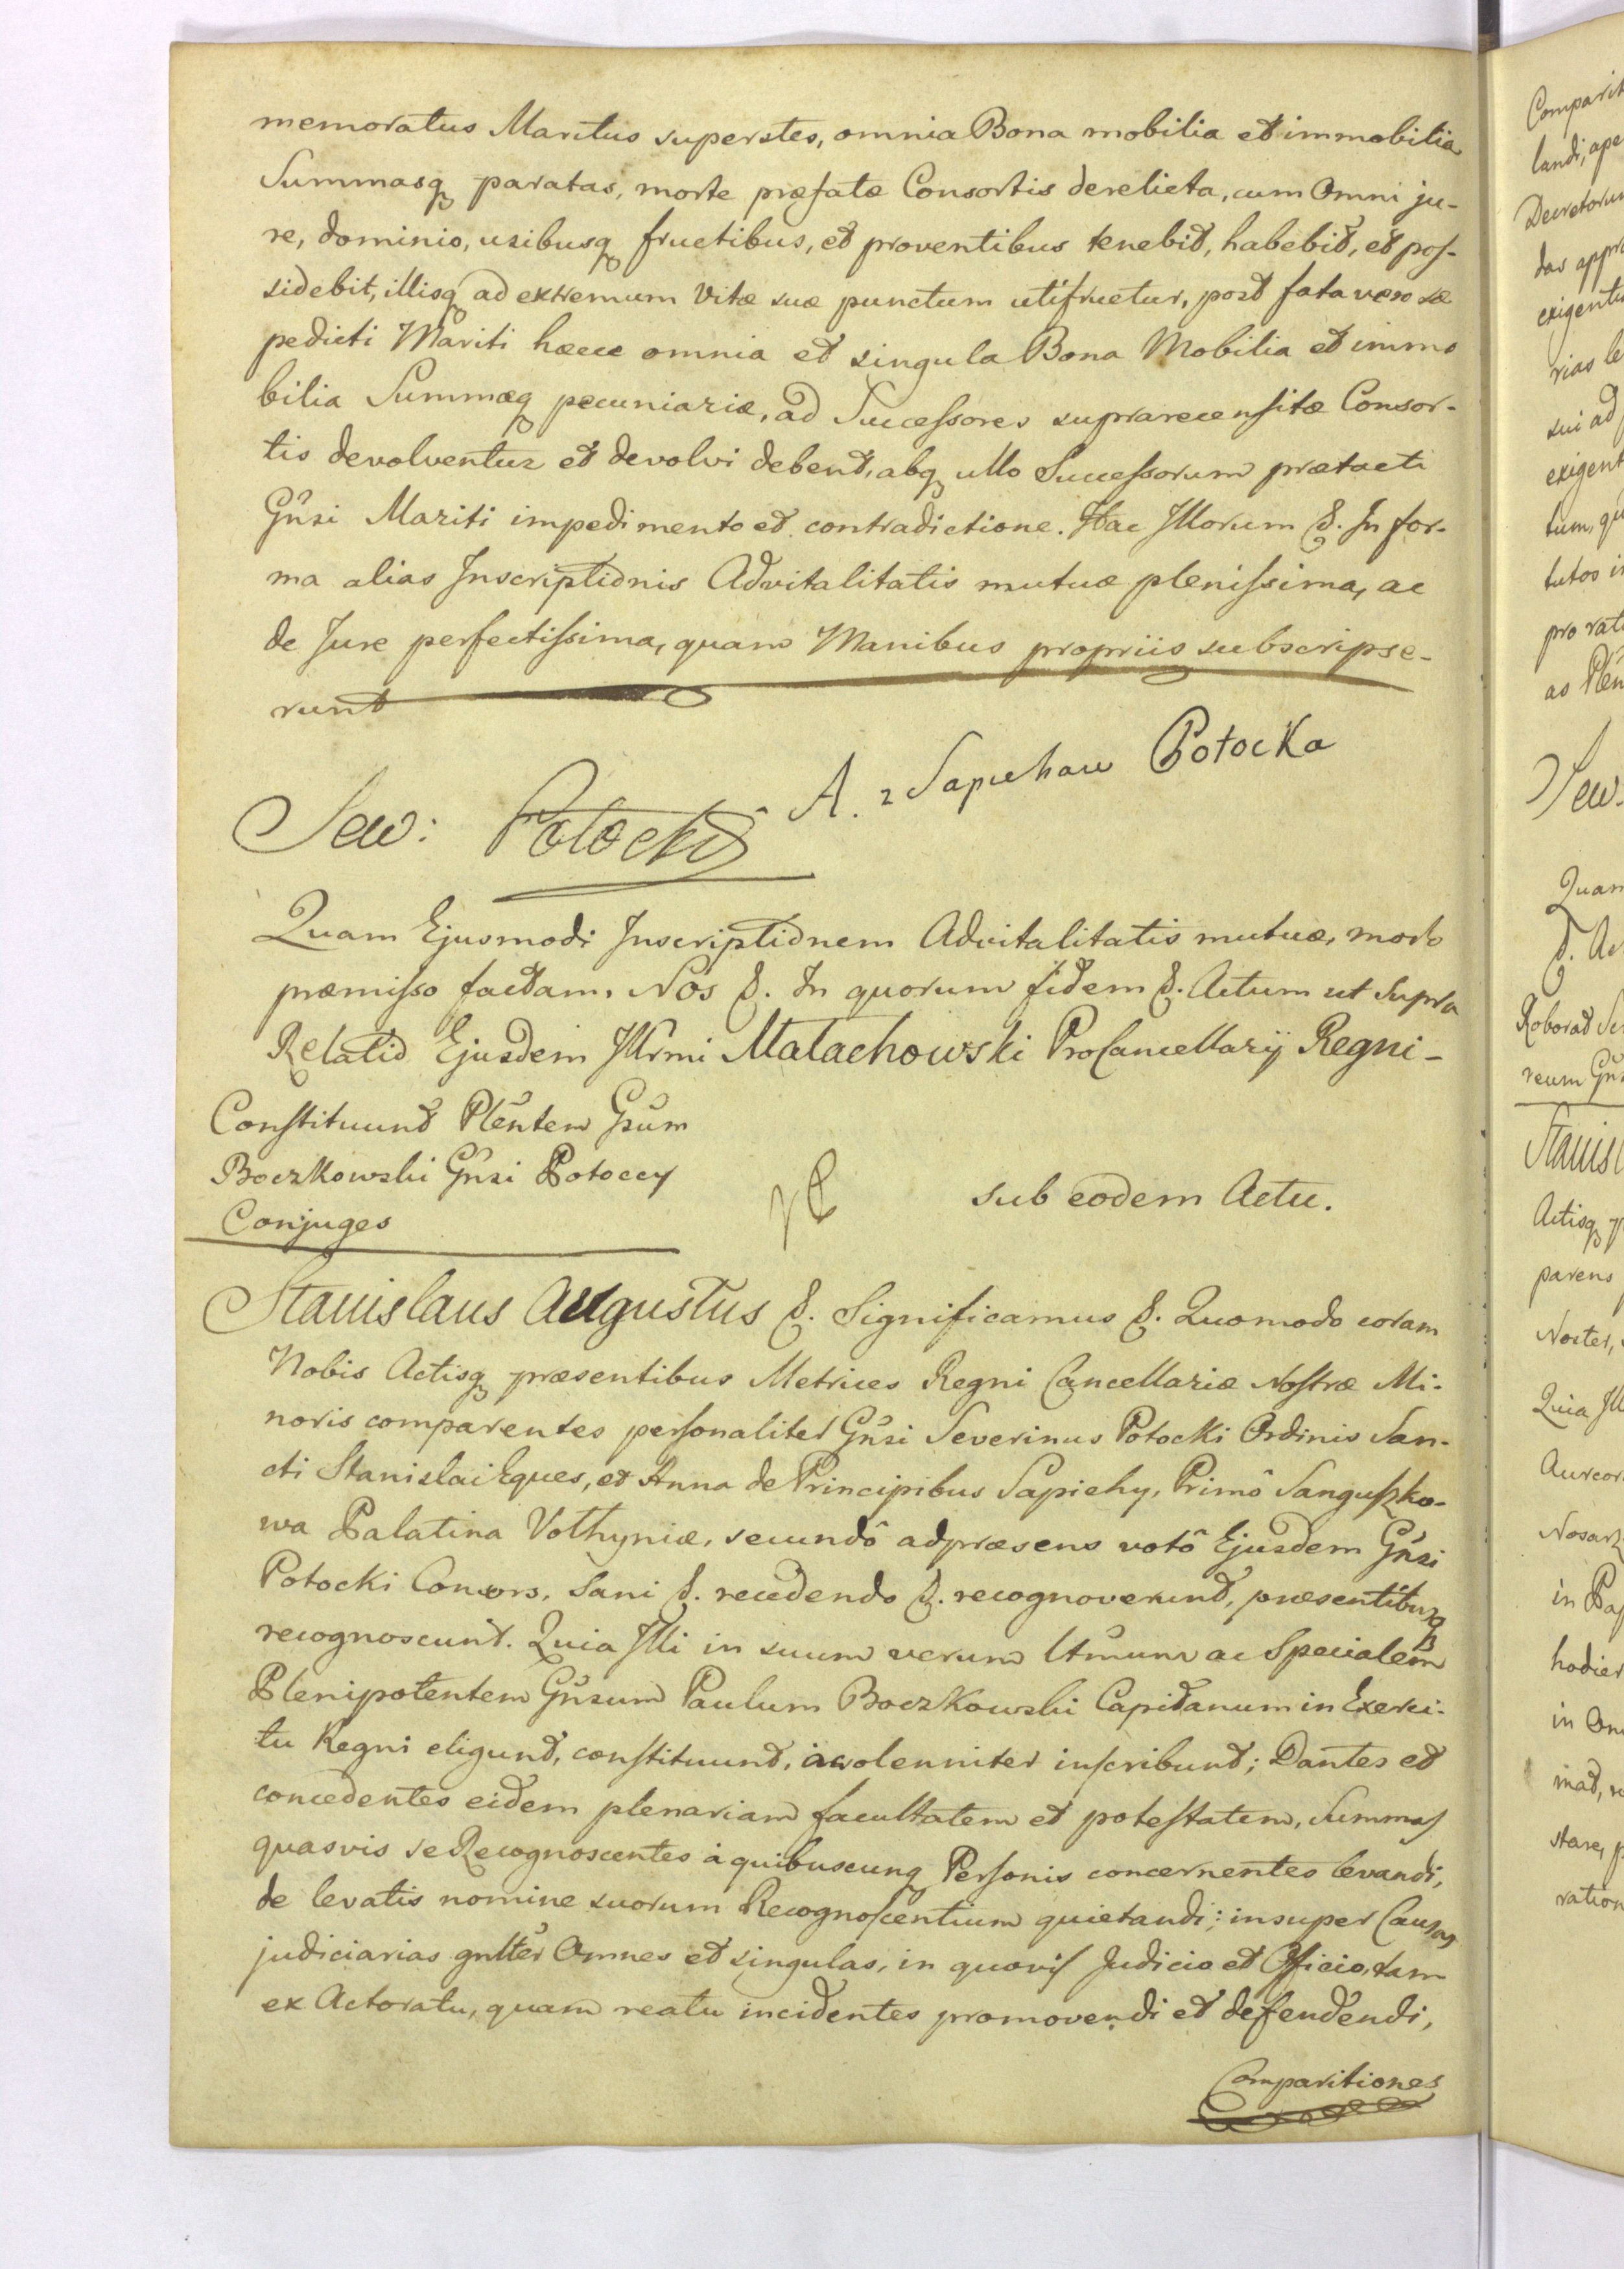 memoratus Maritus superstes, omnia Bona mobilia et immobilia
Summasq paratas, morte præfatæ Consortis derelicta, cum Omni ju-
re, dominio, usibusq fructibus, et proventibus tenebit, habebit, et pos-
sidebit, illisq ad extremum Vitæ suæ punctum utifruetur, post fata vero sæ
pedicti Mariti hæcce omnia et singula Bona Mobilia et immo
bilia Summæq pecuniariæ, ad Successores suprarecensitæ Consor-
tis devolventur et devolvi debent, absq ullo Successorum prætacti
Gñsi Mariti impedimento et contradictione. Hac Illorum &. In for-
ma alias Inscriptionis Advitalitatis mutuæ plenissima, ac
de Jure perfectissima, quam Manibus propriis subscripse-
runt
A. z Sapiehow Potocka
Sew: Potocki
Quam Ejusmodi Inscriptionem Advitalitatis mutuæ, modo
præmisso factam, Nos &. In quorum fidem &. Actum ut Supra
Relatio Ejusdem Illrmi Małachowski ProCancellarÿ Regni-
Constituunt Plentem Gsum
Boczkowski Gñsi Potoccy
Conjuges
sub eodem Actu.
Stanislaus Augustus &. Significamus &. Quomodo coram
Nobis Actisq præsentibus Metrices Regni Cancellariæ Nostræ Mi-
noris comparentes personaliter Gñsi Severinus Potocki Ordinis San-
cti Stanislai Eques, et Anna de Principibus Sapiehy, Primô Sanguszko-
wa Palatina Vołhyniæ, secundô adpræsens votô Ejusdem Gñsi
Potocki Consors, Sani &. recedendo &. recognoverunt, præsentibusq
recognoscunt. Quia Illi in suum verum ltmum ac Specialem
Plenipotentem Gñsum Paulum Boczkowski Capitanum in Exerci-
tu Regni eligunt, constituunt, ac solenniter inscribunt; Dantes et
concedentes eidem plenariam facultatem et potestatem, Summas
quasvis se Recognoscentes à quibuscunq Personis concernentes levandi,
de levatis nomine suorum Recognoscentium quietandi; insuper Causas
judiciarias gnlter Omnes et singulas, in quovis Judicio et Officio, tam
ex Actoratu, quam reatu incidentes promovendi et defendendi,
Comparitiones